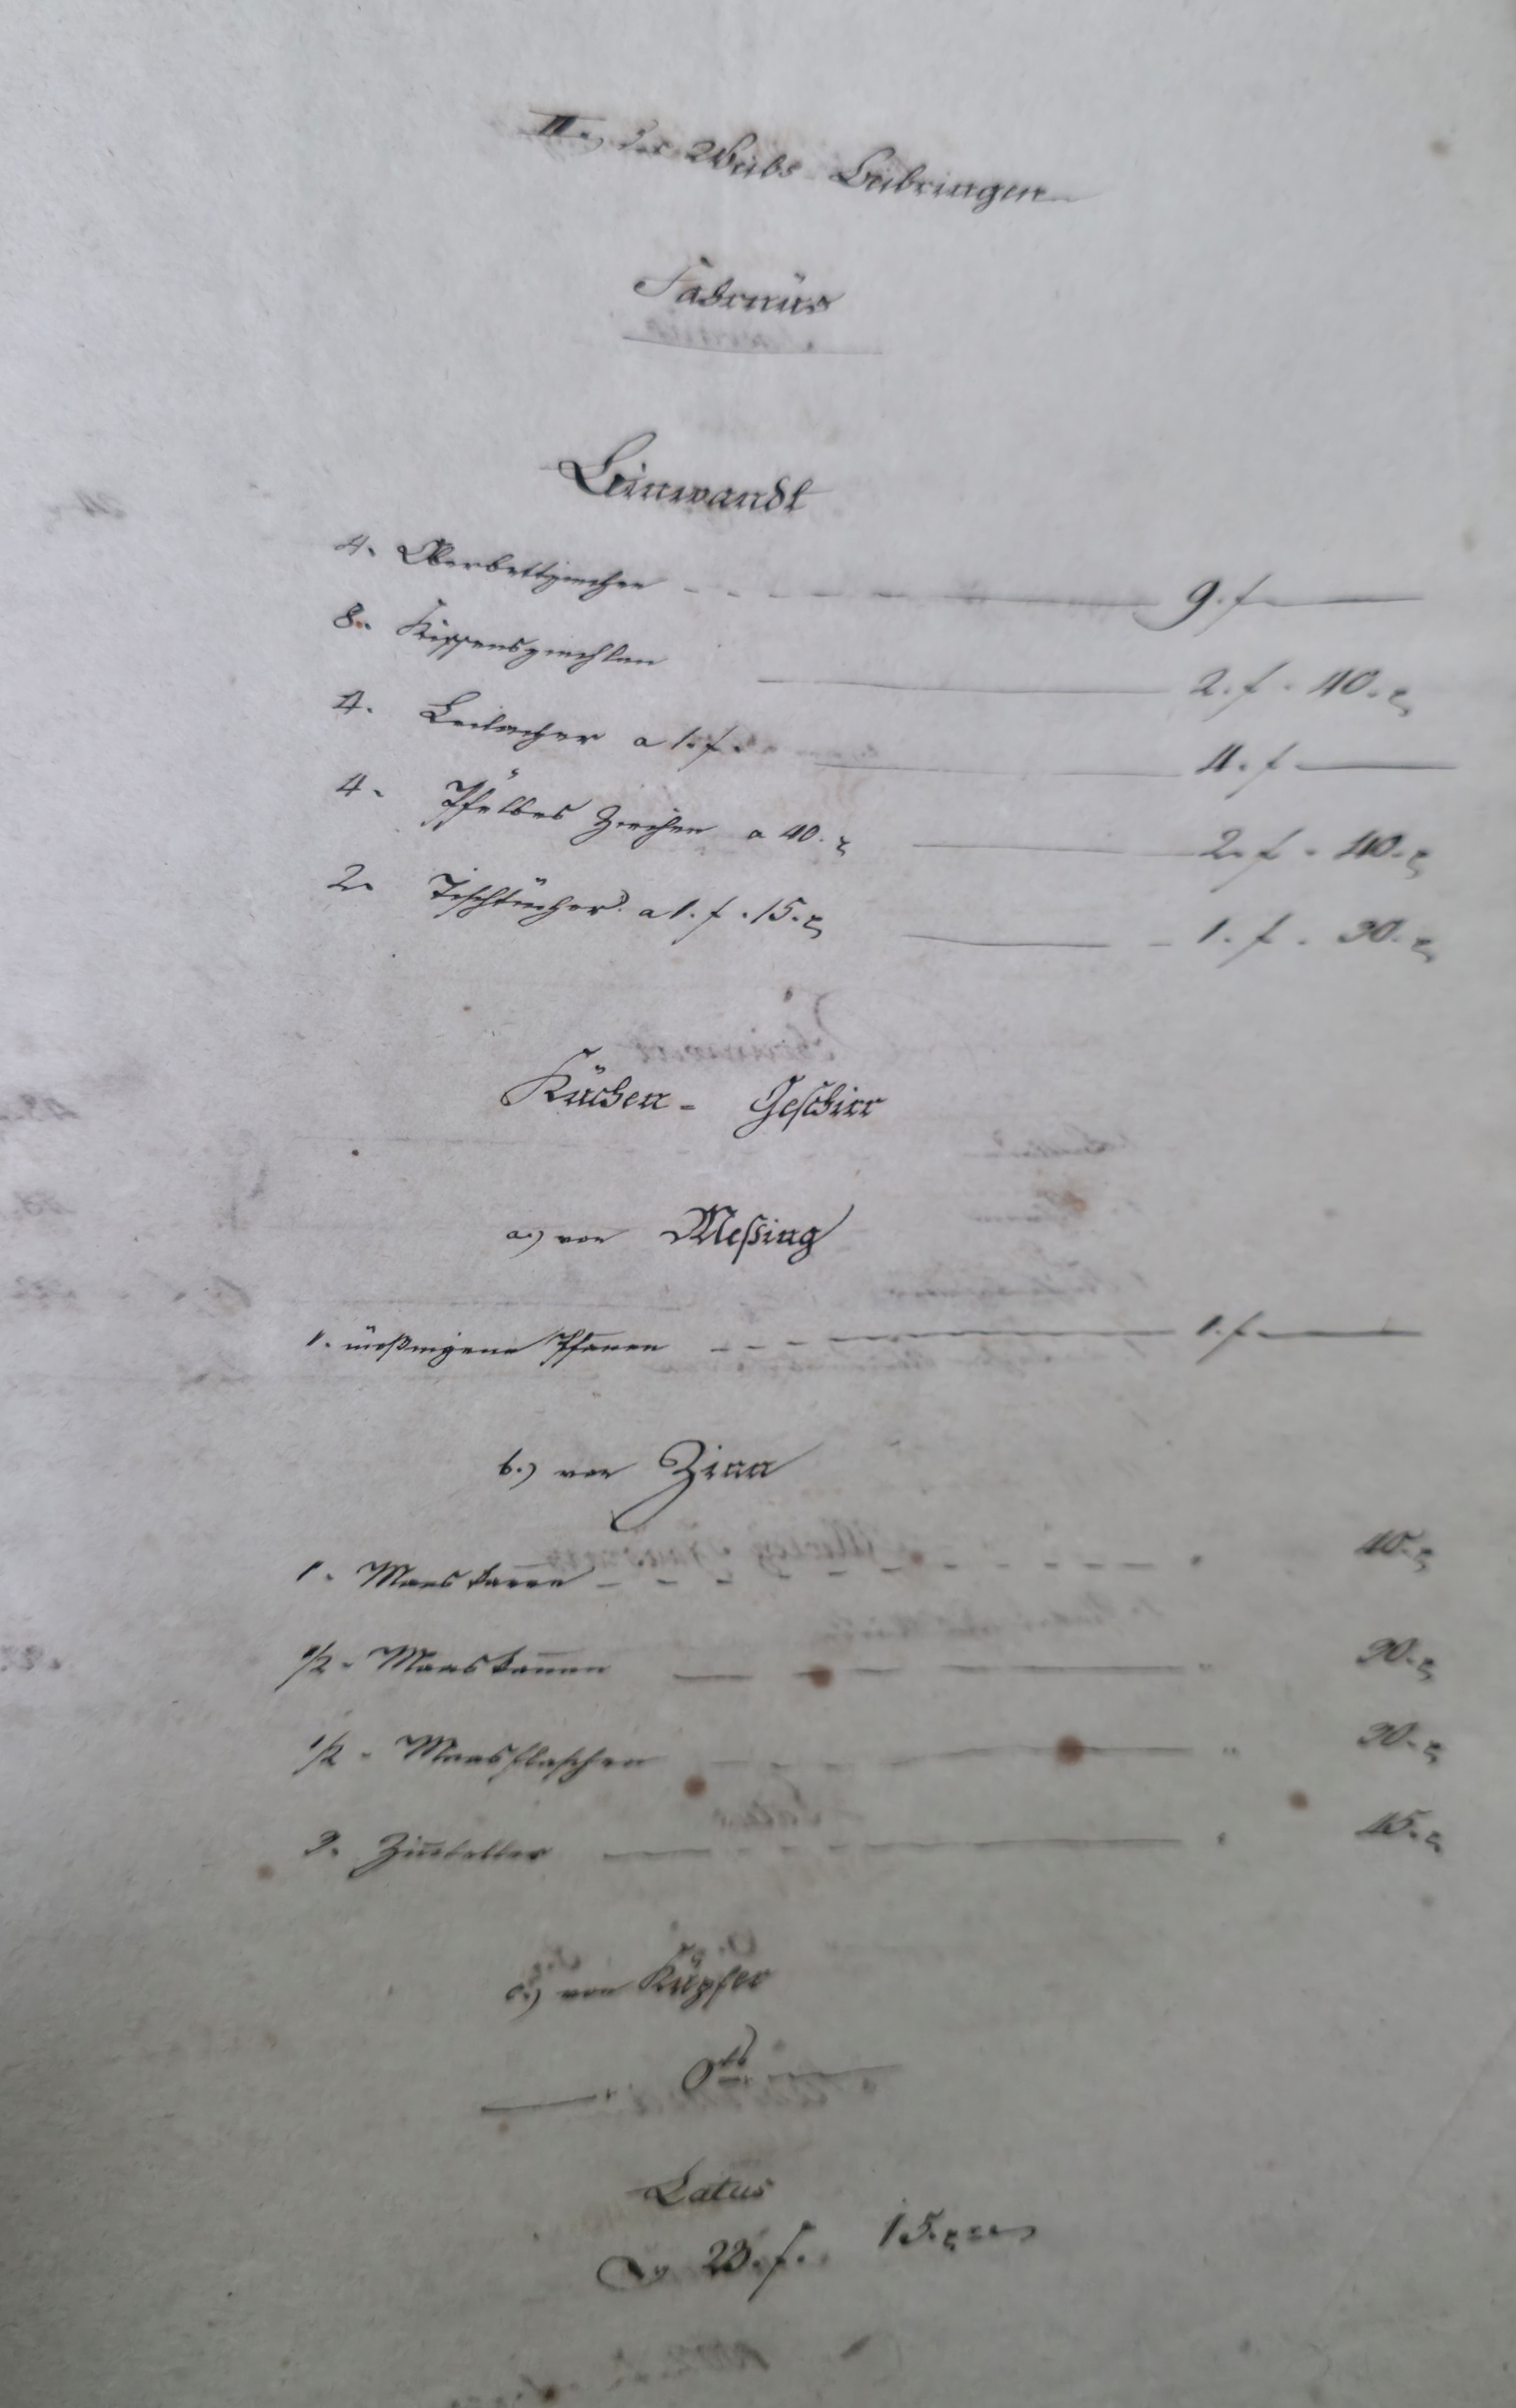 II. Des Weibs Beibringen
Fahrnüs
Leinwandt
4. Oberbettziechen 9. f
8. Küssensziechlen 2. f. 40. x
4. Leilacher a 1. f. 4. f
4. Pfülbes Ziechen a 40. x 2. f. 40. x
2. Tischtücher a 1. f. 15. x 1. f. 30. x
Küchen- Geschirr
a.) von Meßing
1. meßingene Pfannen 1. f
b.) von Zinn
1. Maas kanne 40. x
1/2. Maas kannen 30. x
1/2. Maasflaschen 30. x
3. Zinnteller 45. x
c.) von Kupfer
0
Latus
23. f. 15. x